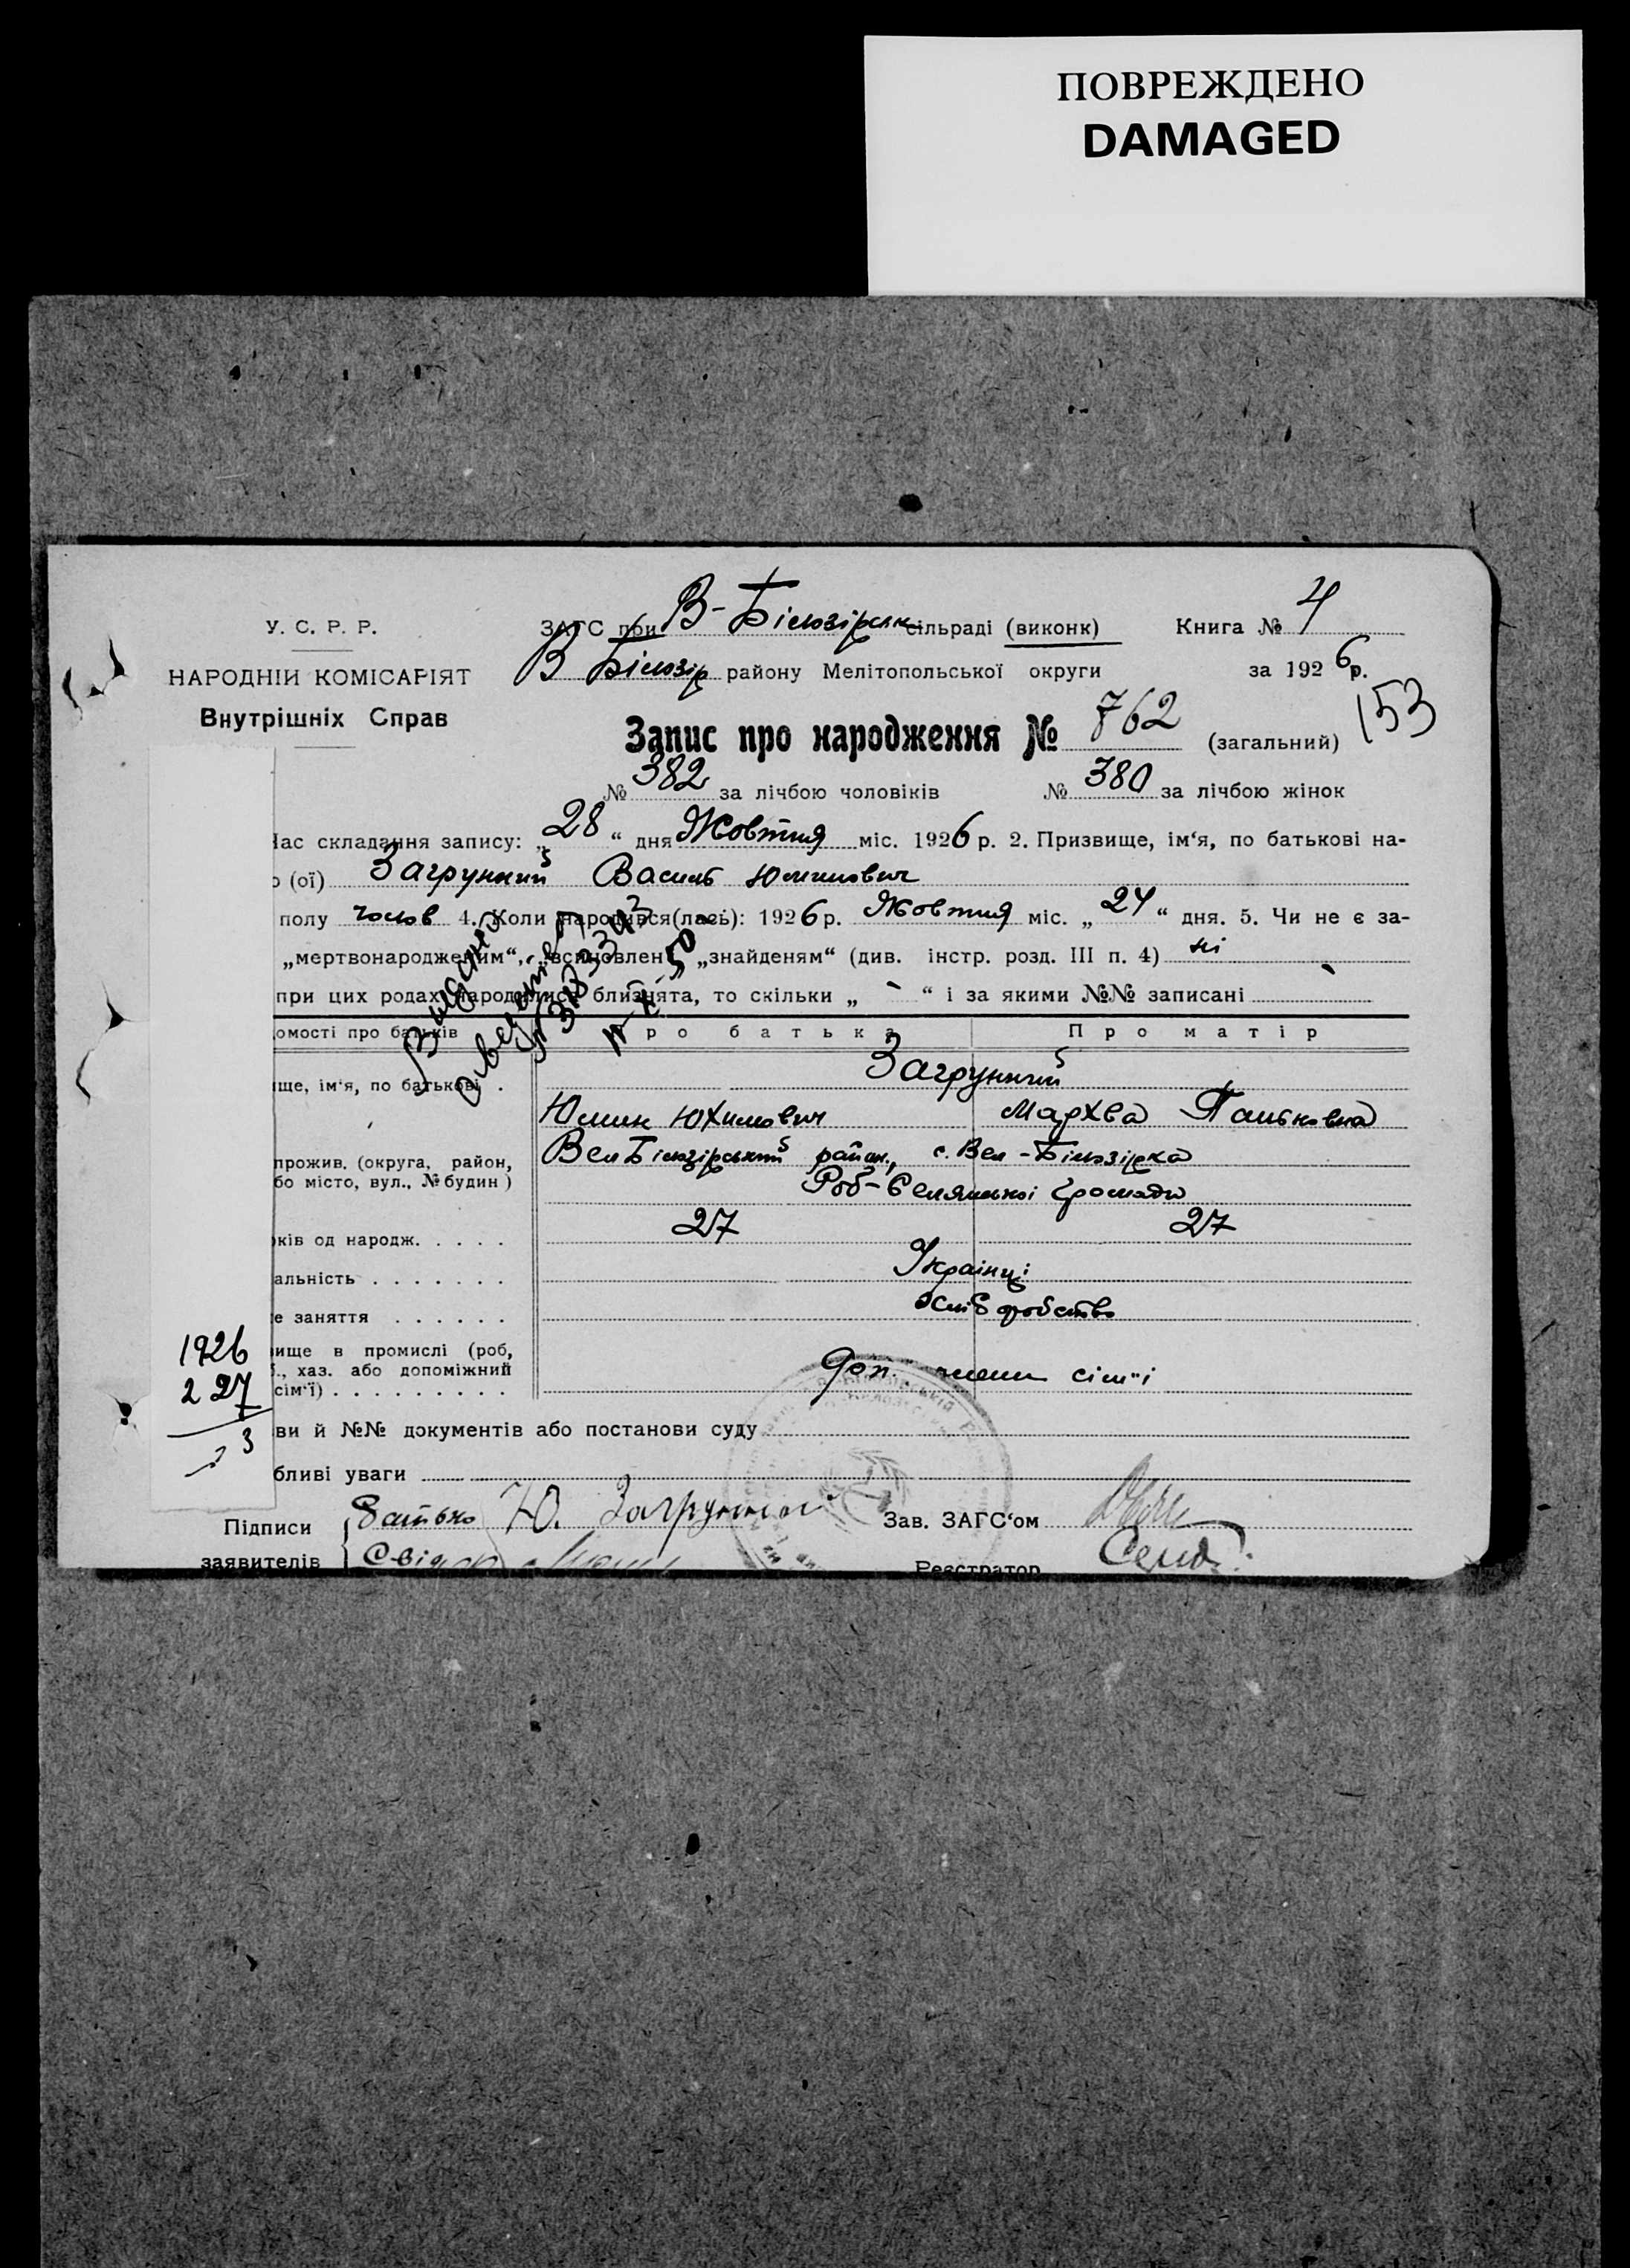 ПОВРЕЖДЕНО
DAMAGED
У. С. Р. Р.
НАРОДНІЙ КОМІСАРІЯТ
Внутрішніх Справ
ЗАГС при В-Білозірськ сільраді (виконк) Книга № 4
В Білозір району Мелітопольської округи за 1926 р.
153
Запис про народження № 762 (загальний)
№ 382 за лічбою чоловіків № 380 за лічбою жінок
Час складання запису: „28“ дня Жовтня міс. 1926 р. 2. Призвище, ім‘я, по батькові на-
о (ої) Загрунний Василь Юлинович
полу чолов 4. Коли народився(лась): 1926 р. Жовтня міс. „24“ дня. 5. Чи не є за-
„мертвонародженим“, „всиновлен „знайденям“ (див. інстр. розд. III п. 4) ні
при цих родах народилися близнята, то скільки „ - “ і за якими №№ записані -
омості про батьків Про батька Про матір
ище, ім‘я, по батькові . Загрунний
Юлин Юхимович Мархва Паньковна
прожив. (округа, район, Вел Білозірський район, с. Вел-Білозірка
бо місто, вул., № будин ) Роб-Селянської Громади
ків од народж. . . . . 27 27
альність . . . . . . . Українці
е заняття . . . . . . хліборобство
ище в промислі (роб,
., хаз. або допоміжний Доп. член сім"ї
сім‘ї) . . . . . . . . .
1926
27
3
ви й №№ документів або постанови суду
бливі уваги
Підписи Батько Ю. Загрунний Зав. ЗАГС‘ом
заявителів Реєстратор